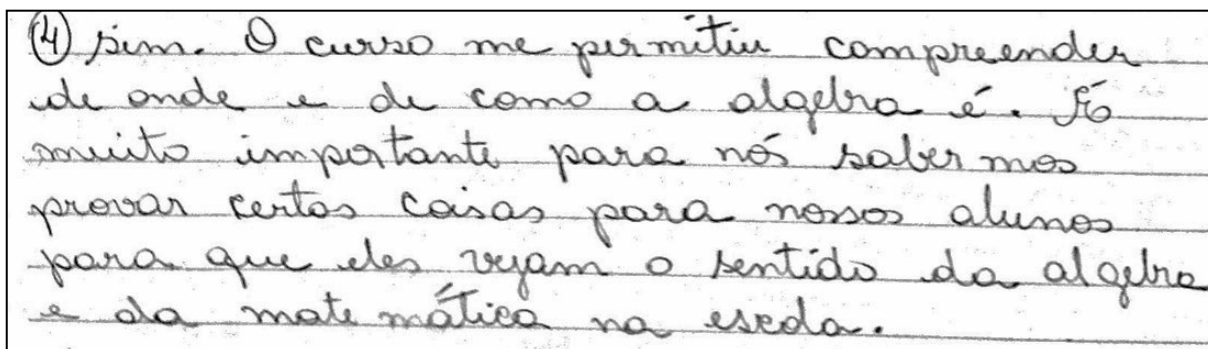 ④ sim. O curso me permitiu compreender
de onde e de como a algebra é. É
muito importante para nós sabermos
provar certas coisas para nossos alunos
para que eles vejam o sentido da algebra
e da matemática na escola.